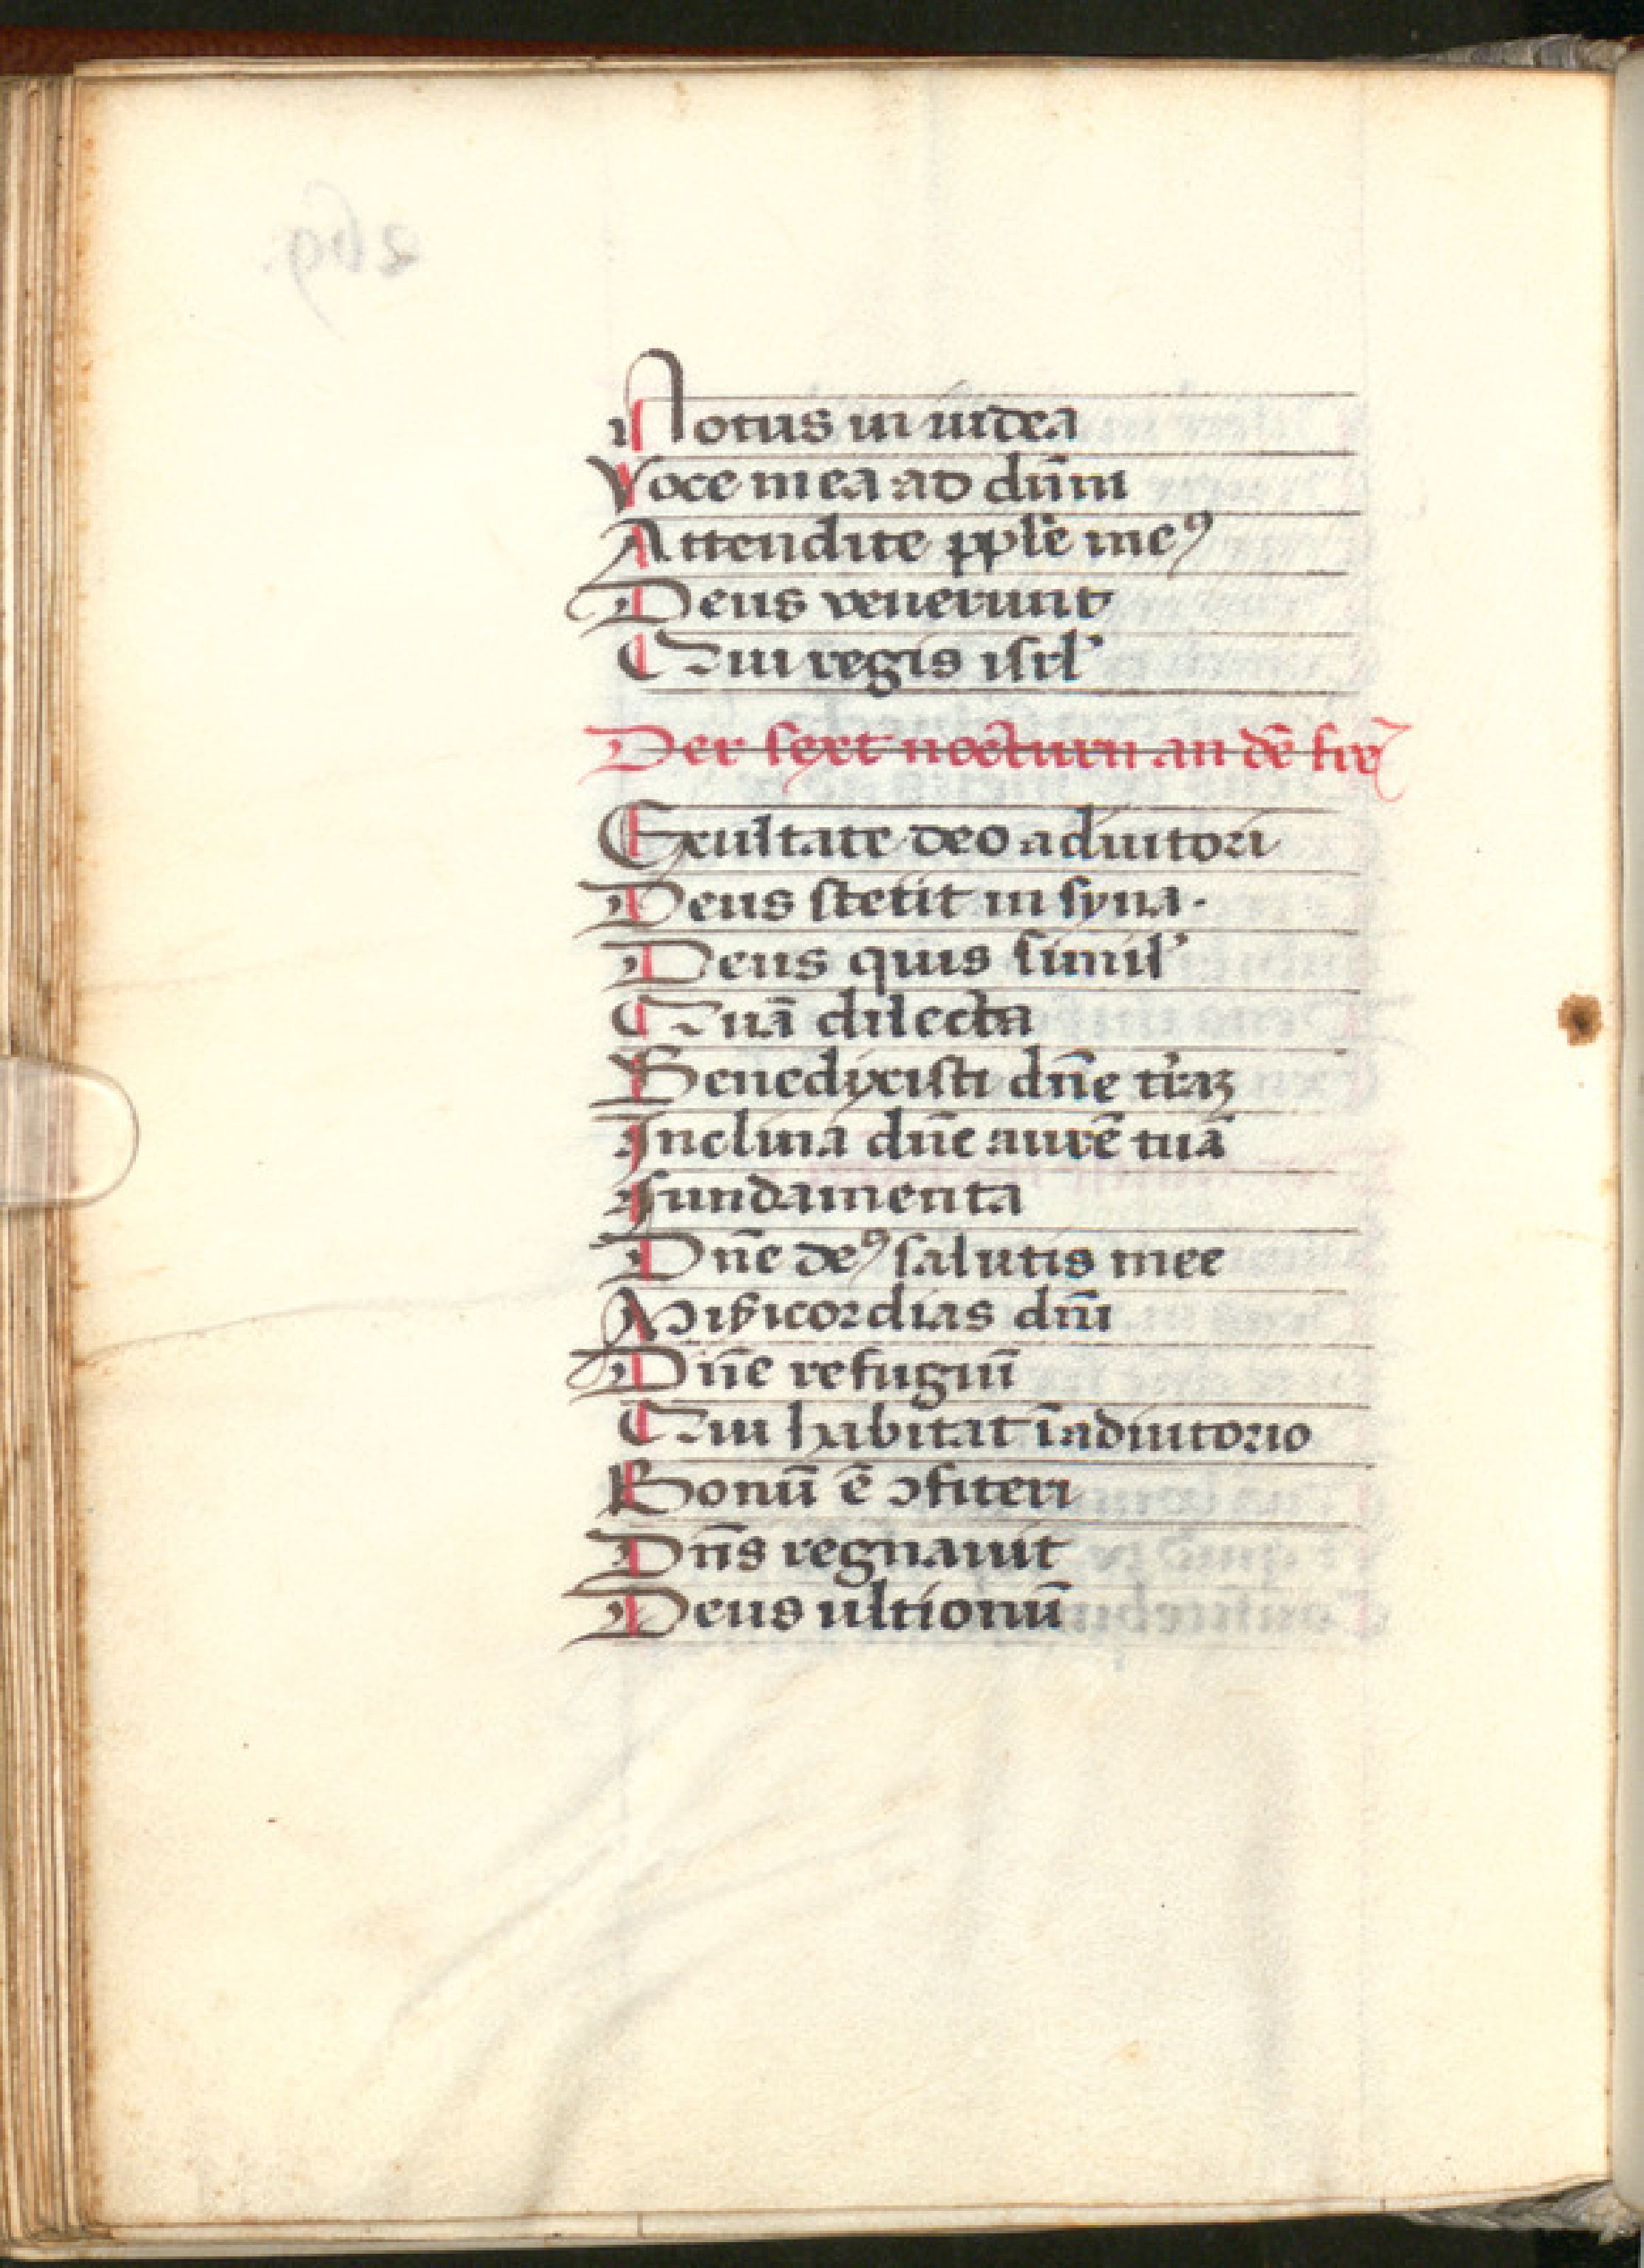 Notus in iudea
Voce mea ad dn̄m
Attendite pple meꝰ
Deus venerunt
Qui regis isrl'
Der sext nocturn an dē frey
Exultate deo adiutori
Deus stetit in syna·
Deus quis simil'
Quā dilecta
Benedixisti dn̄e trāꝫ
Inclina dn̄e aurē tuā
fundamenta
Dn̄e deꝰ salutis mee
Mis̄icordias dn̄i
Dn̄e refugiū
Qui habitat ī adiutorio
Bonū ē ↄfiteri
Dn̄s regnauit
Deus ultionū